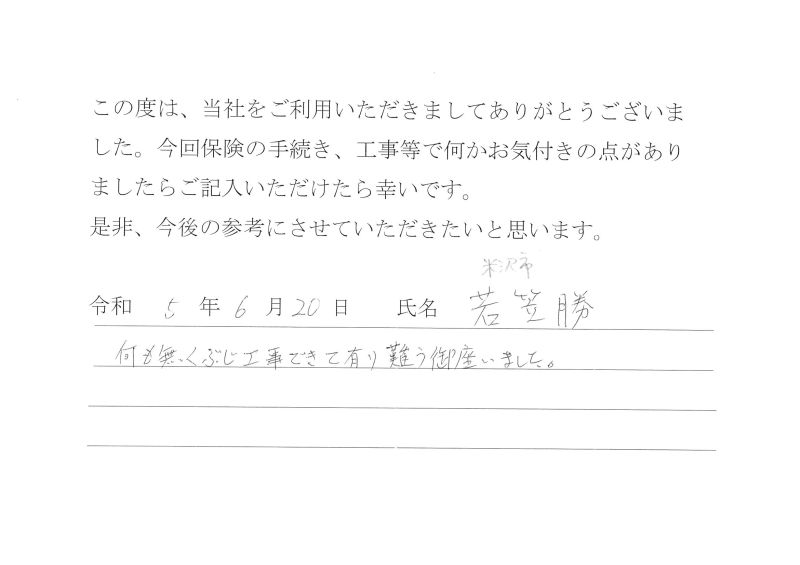 この度は、当社をご利用いただきましてありがとうございま
した。今回保険の手続き、工事等で何かお気付きの点があり
ましたらご記入いただけたら幸いです。
是非、今後の参考にさせていただきたいと思います。
米沢市
令和 5 年 6 月 20 日 氏名 若笠勝
何も無くぶじ工事できて有り難う御座いました。